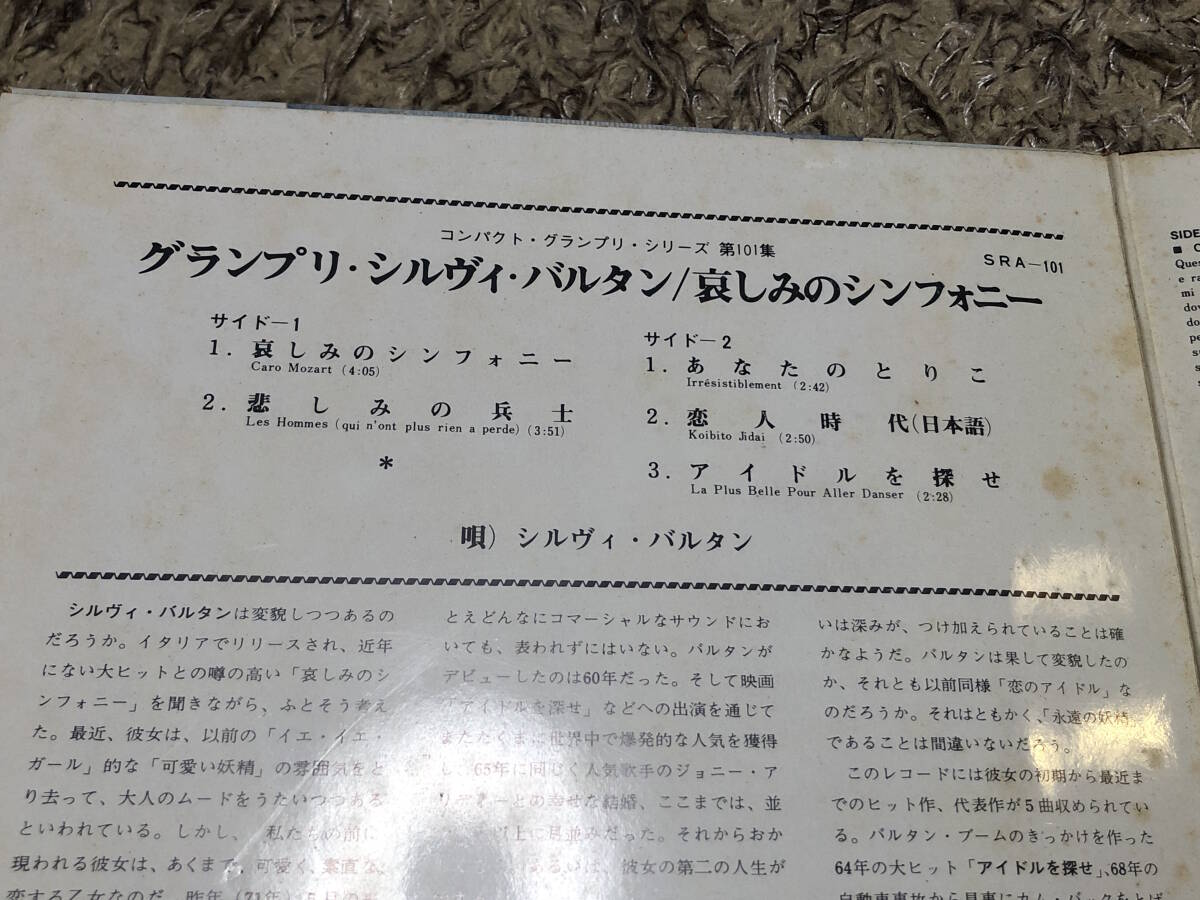 コンパクト・グランプリ・シリーズ 第101集
SRA-101
グランプリ・シルヴィ・バルタン/哀しみのシンフォニー
サイド-1
1. 哀しみのシンフォニー
Caro Mozart (4:05)
2. 悲しみの兵士
Les Hommes (qui n'ont plus rien a perde) (3:51)
*
サイド-2
1. あなたのとりこ
Irrésistiblement (2:42)
2. 恋人時代(日本語)
Koibito Jidai (2:50)
3. アイドルを探せ
La Plus Belle Pour Aller Danser (2:28)
唄) シルヴィ・バルタン
シルヴィ・バルタンは変貌しつつあるの
だろうか。イタリアでリリースされ、近年
にない大ヒットとの噂の高い「哀しみのシ
ンフォニー」を聞きながら、ふとそう考え
た。最近、彼女は、以前の「イエ・イエ・
ガール」的な「可愛い妖精」の雰囲気をと
り去って、大人のムードをうたいつつある
といわれている。しかし、私たちの前に
現われる彼女は、あくまで、可愛く、素直な、
恋する乙女なのだ。昨年(71年)5月の
とえどんなにコマーシャルなサウンドにお
いても、表われずにはいない。バルタンが
デビューしたのは60年だった。そして映画
「アイドルを探せ」などへの出演を通じて
またたくまに世界中で爆発的な人気を獲得
し、65年に同じく人気歌手のジョニー・ア
リデイーとの幸せな結婚、ここまでは、並
以上に月並みだった。それからおか
あるいは、彼女の第二の人生が
いは深みが、つけ加えられていることは確
かなようだ。バルタンは果して変貌したの
か、それとも以前同様「恋のアイドル」な
のだろうか。それはともかく、「永遠の妖精」
であることは間違いないだろう。
このレコードには彼女の初期から最近ま
でのヒット作、代表作が5曲収められてい
る。バルタン・ブームのきっかけを作った
64年の大ヒット「アイドルを探せ」、68年の
自動車事故から見事にカム・バックをとげ
SIDE
■
Ques
e ra
mi
dov
do
pe